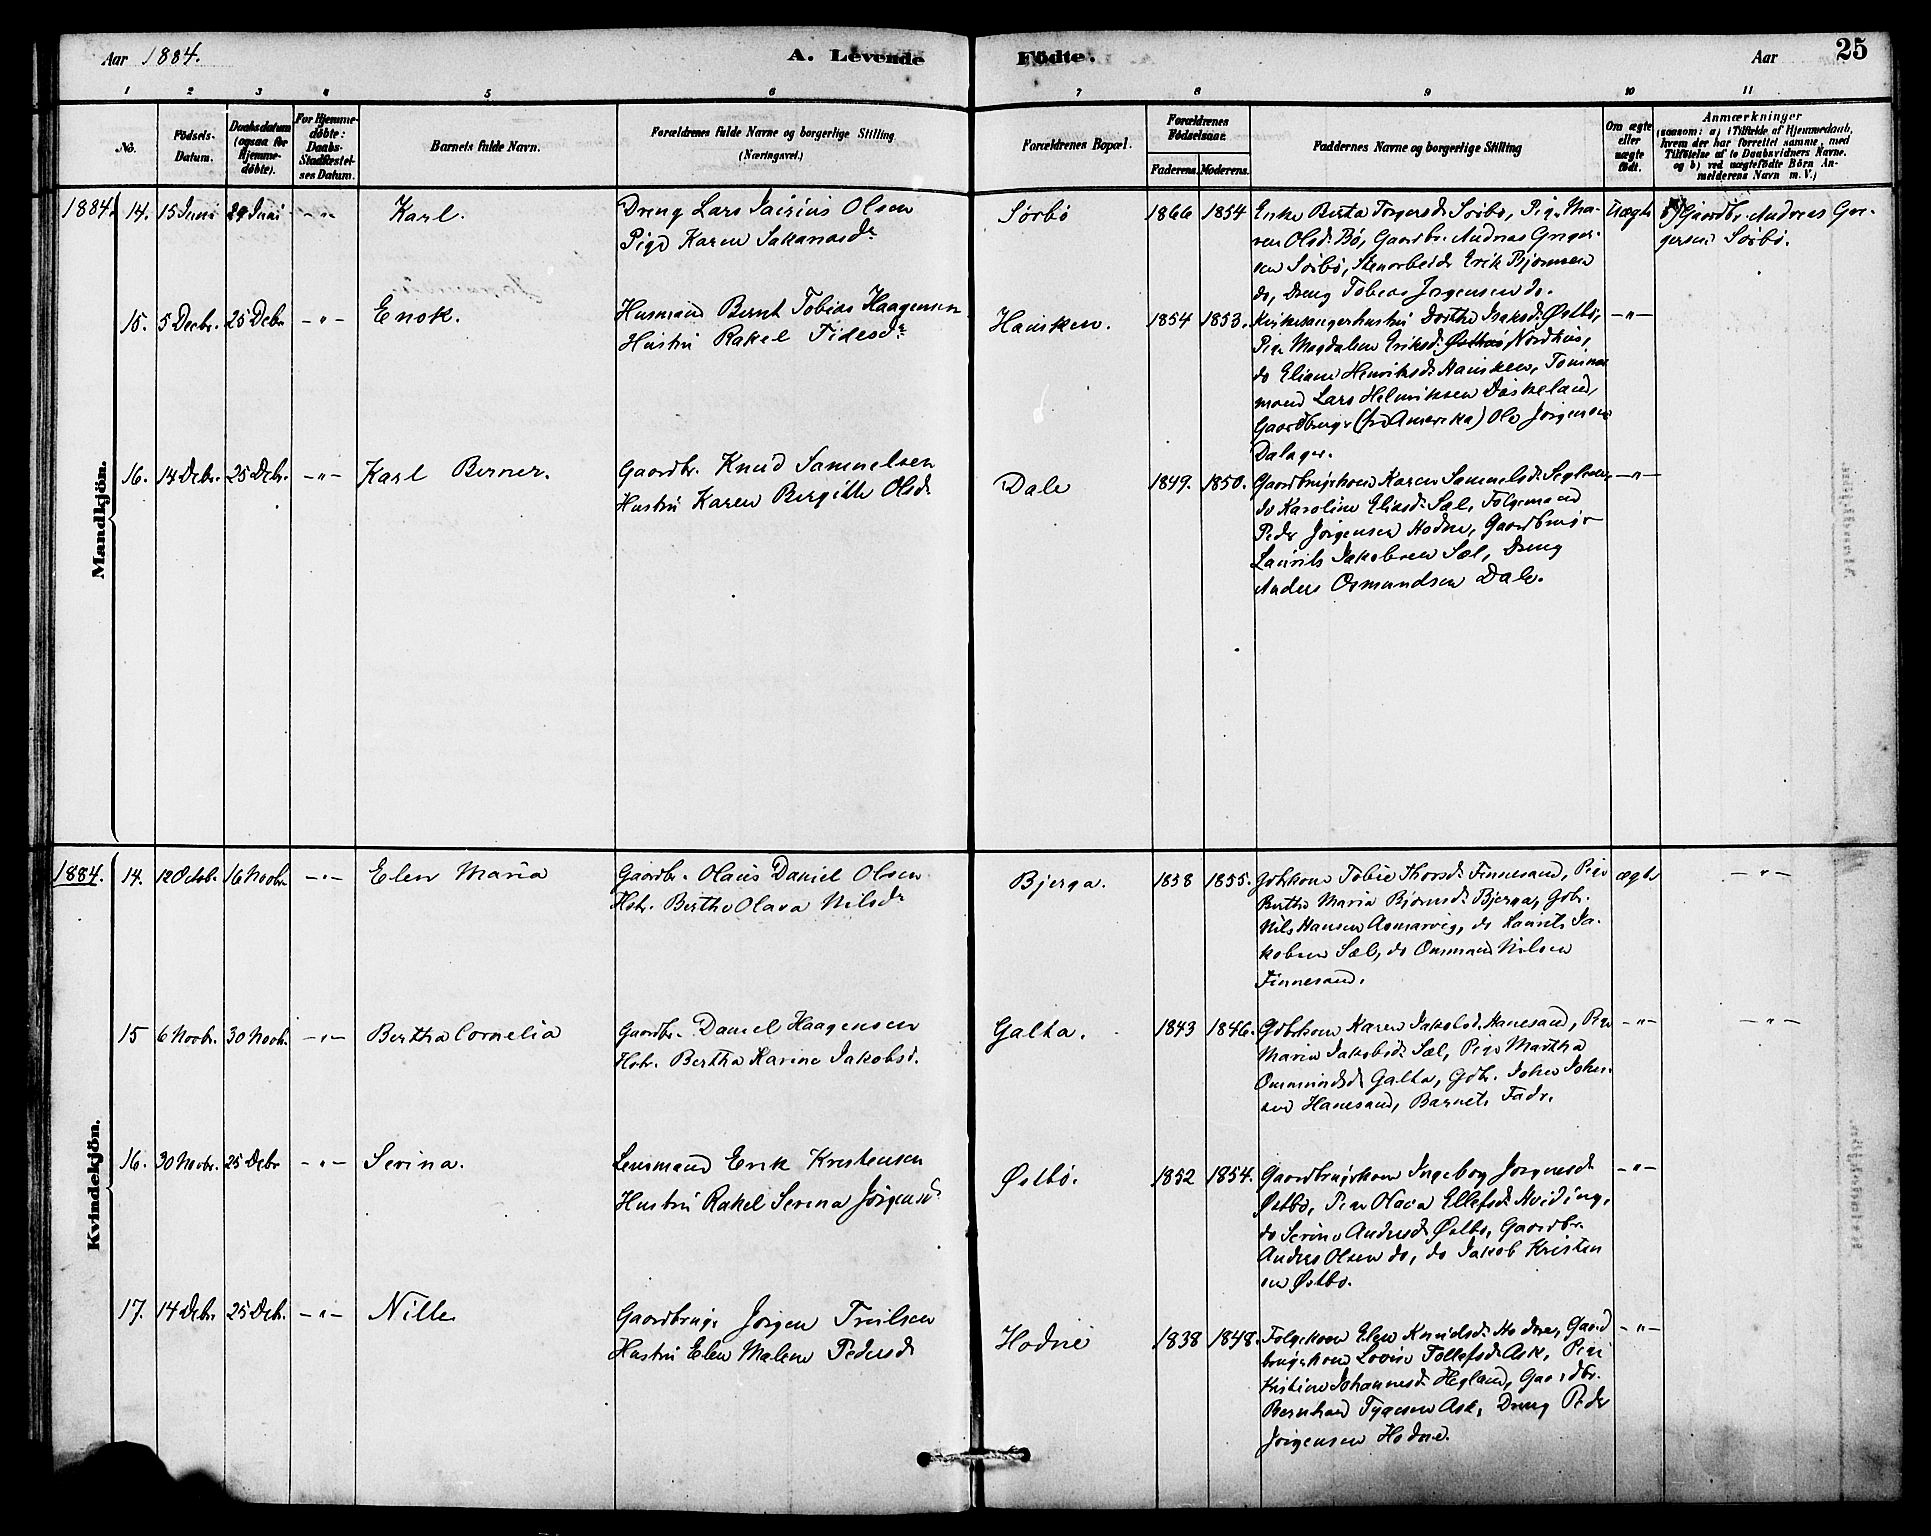 Aar 1884.
A. Levende
Födte.
Aar
25
1 2 3 4 5 6 7 8 9 10 11
No.
Födsels-Datum.
Daabsdatum (ogsaa for Hjemme-döbte).
For Hjemme-döbte: Daabs-Stadfæstel-ses Datum.
Barnets fulde Navn.
Forældrenes fulde Navne og borgerlige Stilling (Næringsvei.)
Forældrenes Bopæl.
Forældrenes Födselsaar.
Faderens. Moderens.
Faddernes Navne og borgerlige Stilling
Om ægte eller uægte födt.
Anmærkninger
(saasom: a) i Tilfælde af Hjemmedaab, hvem der har forrettet samme, med Tilföielse af to Daabsvidners Navne. og b) ved uægtefödte Börn An-melderens Navn m. V.)
Mandkjön.
1884. 14. 15 Juni 29 Juni -"- Karl.
Dreng Lars Olsen
Pige Karen
Sørbø 1866 1854
Enke Berta Torgersd. Sørbø, Pige Ma-
ren Olsd. Bø, Gaardbr. Andreas Greger-
sen Sørbø, Stenarbeider Erik Bjørnsen
do, Dreng Tobias Jørgensen do.
Uægte
b) Gaardbr. Andreas Gre-
gersen Sørbø.
15. 5 Decbr. 25 Debr -"- Enok.
Husmand Bernt Tobias Haagensen
Hustru Rakel
Hausken. 1854 1853.
Kirkesangerhustru Dorthe Isaksd. Østbø,
Pige Magdalene Eriksd. Nordhus,
do Eliane Henriksd. Hausken,
Lars Helmiksen
Gaardbruger (fra Amerika) Ole Jørgensen
Dalager.
-"-
16. 14 Debr. 25 Debr. -"- Karl Berner.
Gaardbr. Knud Samuelsen
Hustru Karen Bergitte Olsdr
Dale 1849. 1850.
Gaardbrugerkone Karen Samuelsd.
do Karoline Eliasd. Sæl, Følgemand
Peder Jørgensen Hodne, Gaardbruger
Laurits Jakobsen Sæl, Dreng
Anders Osmundsen Dale.
-"-
Kvindekjön.
1884. 14. 12 Octob. 16 Novbr. -"- Elen Maria
Gaardbr. Olaus Daniel Olsen
Hstr. Berthe Olava Nilsdr
Bjerga. 1838 1855.
Gdbrkone Tobie Finnesand, Pige
Berthe Maria Bjørnsd. Bjerga, Gdbr.
Nils Hansen Asmarvig, do Laurits Ja-
kobsen Sæl, do Ommund Nilsen
Finnesand.
ægte -"-
15 6 Novbr. 30 Novbr. -"- Bertha Cornelia
Gaardbr. Daniel Haagensen
Hstr. Bertha Karine Jakobsd.
Galta. 1843 1846.
Gdbrkone Karen Jakobsd. Hanesand, Pige
Maria Jakobsd. Sæl, Pige Martha
Ommundsd. Galta, Gdbr. John John-
sen Hanesand, Barnets Fader.
-"- -"-
16. 30 Novbr. 25 Debr -"- Serina.
Lensmand Erik Kristensen
Hustru Rakel Serina Jørgensd.
Østbø. 1852 1854.
Gaardbrugerkone Ingeborg Jørgensd.
Østbø, Pige Olava Ellefsd. Hviding,
do Serine Andersd. Østbø, Gaardbr.
Anders Olsen do, do Jakob Kristen
sen Østbø.
-"-
17. 14 Debr. 25 Debr. -"- Nille
Gaardbruger Jørgen Truilsen
Hustru Elen Malene Pedersdr
Hodne 1838 1848.
Følgekone Elen Knudsd. Hodne, Gaard
brugerkone Lovise Tollefsd. Ask, Pige
Kristine Johannesd. Hegland, Gaardbr.
Bernhard Tygesen Ask, Dreng Peder
Jørgensen Hodne.
-"-